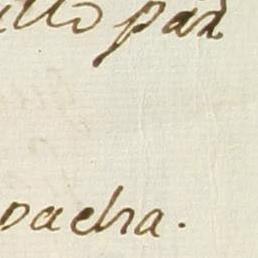 illo par
pacha.